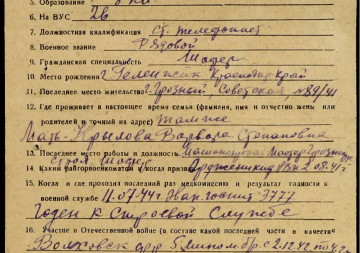 5. Образование
6. На ВУС 2В
7. Должностная квалификация Ст. телефонист
8. Военное звание Рядовой
9. Гражданская специальность Шофер
10. Место рождения г. Геленджик Краснодар край
11. Последнее место жительства г. Грозный Советская, № 89/41
12. Где проживает в настоящее время семья (фамилия, имя и отчество жены или
родителей и точный их адрес) там же
Мать-Крылова Варвара Степановна
13. Последнее место работы и должность Грозный
шофер
14. Каким райгорвоенкоматом (и когда призван) Орджоникид РВК 2.08.41 г
15. Когда и где проходил последний раз медкомиссию и результат годности к
военной службе 11.07.44г Эвакогоспит 3777
Годен к строевой службе
16. Участие в Отечественной войне (в составе какой последней части и в качестве
Волховск фр-т 5 бр. с 2.12.42 по